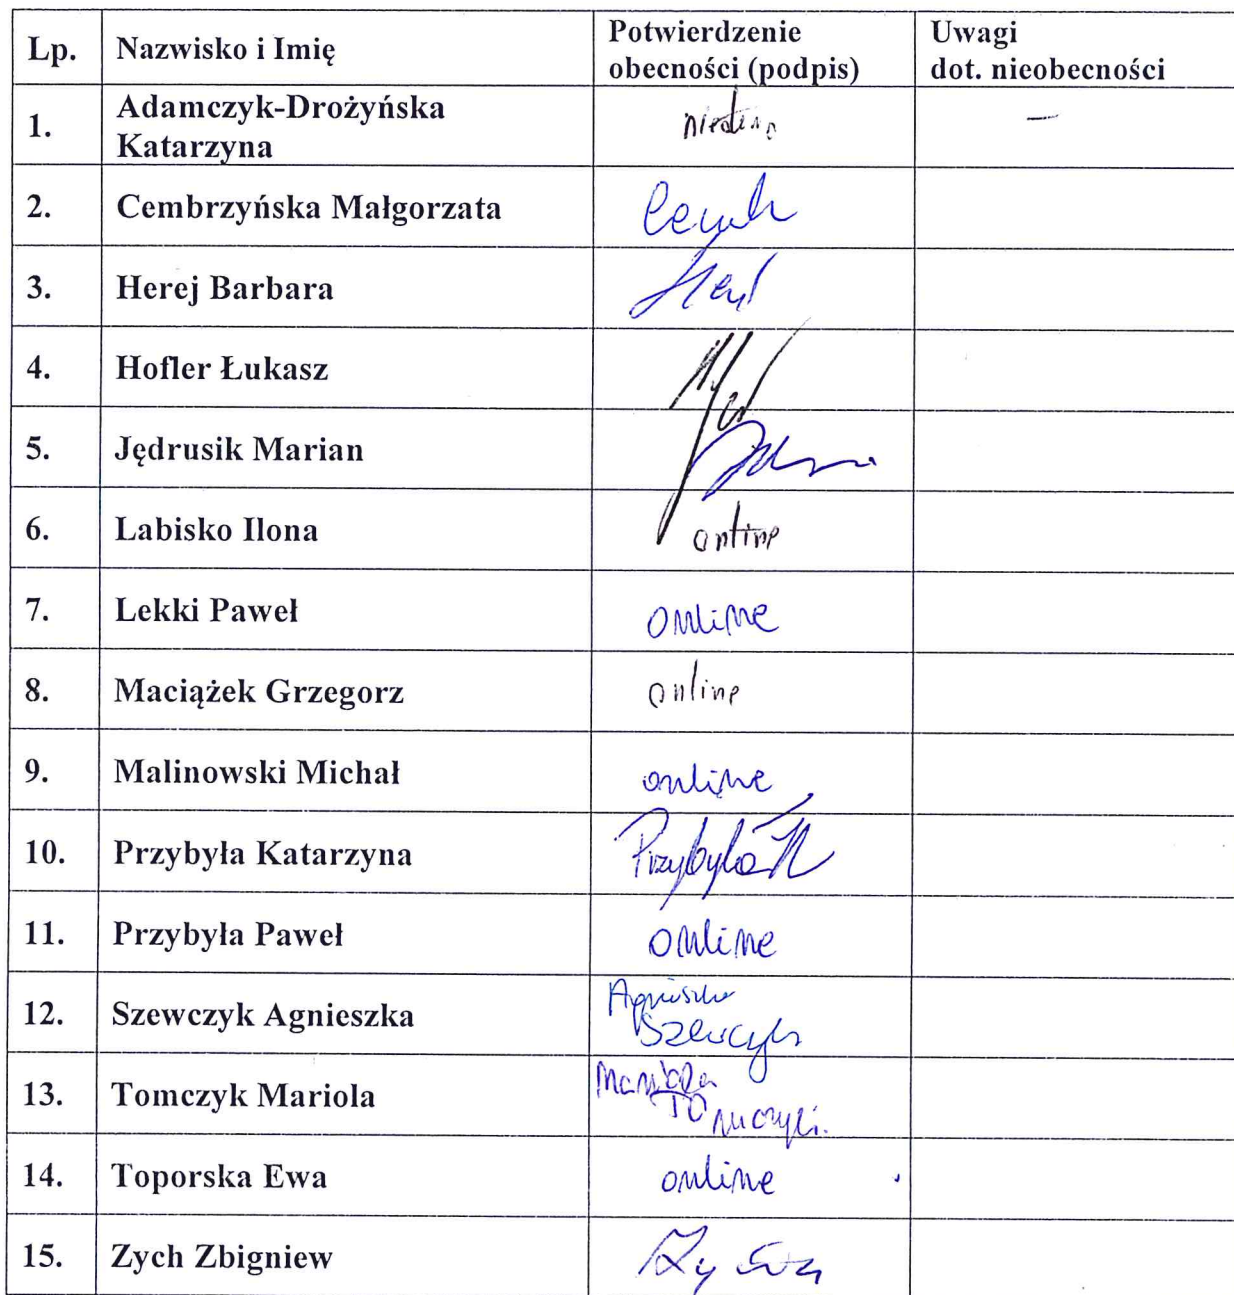 Lp. Nazwisko i Imię Potwierdzenie obecności (podpis) Uwagi dot. nieobecności
1. Adamczyk-Drożyńska Katarzyna —
2. Cembrzyńska Małgorzata
3. Herej Barbara
4. Hofler Łukasz
5. Jędrusik Marian
6. Labisko Ilona online
7. Lekki Paweł online
8. Maciążek Grzegorz online
9. Malinowski Michał online
10. Przybyła Katarzyna Przybyła K
11. Przybyła Paweł online
12. Szewczyk Agnieszka Agnieszka Szewczyk
13. Tomczyk Mariola Mariola Tomczyk
14. Toporska Ewa online
15. Zych Zbigniew